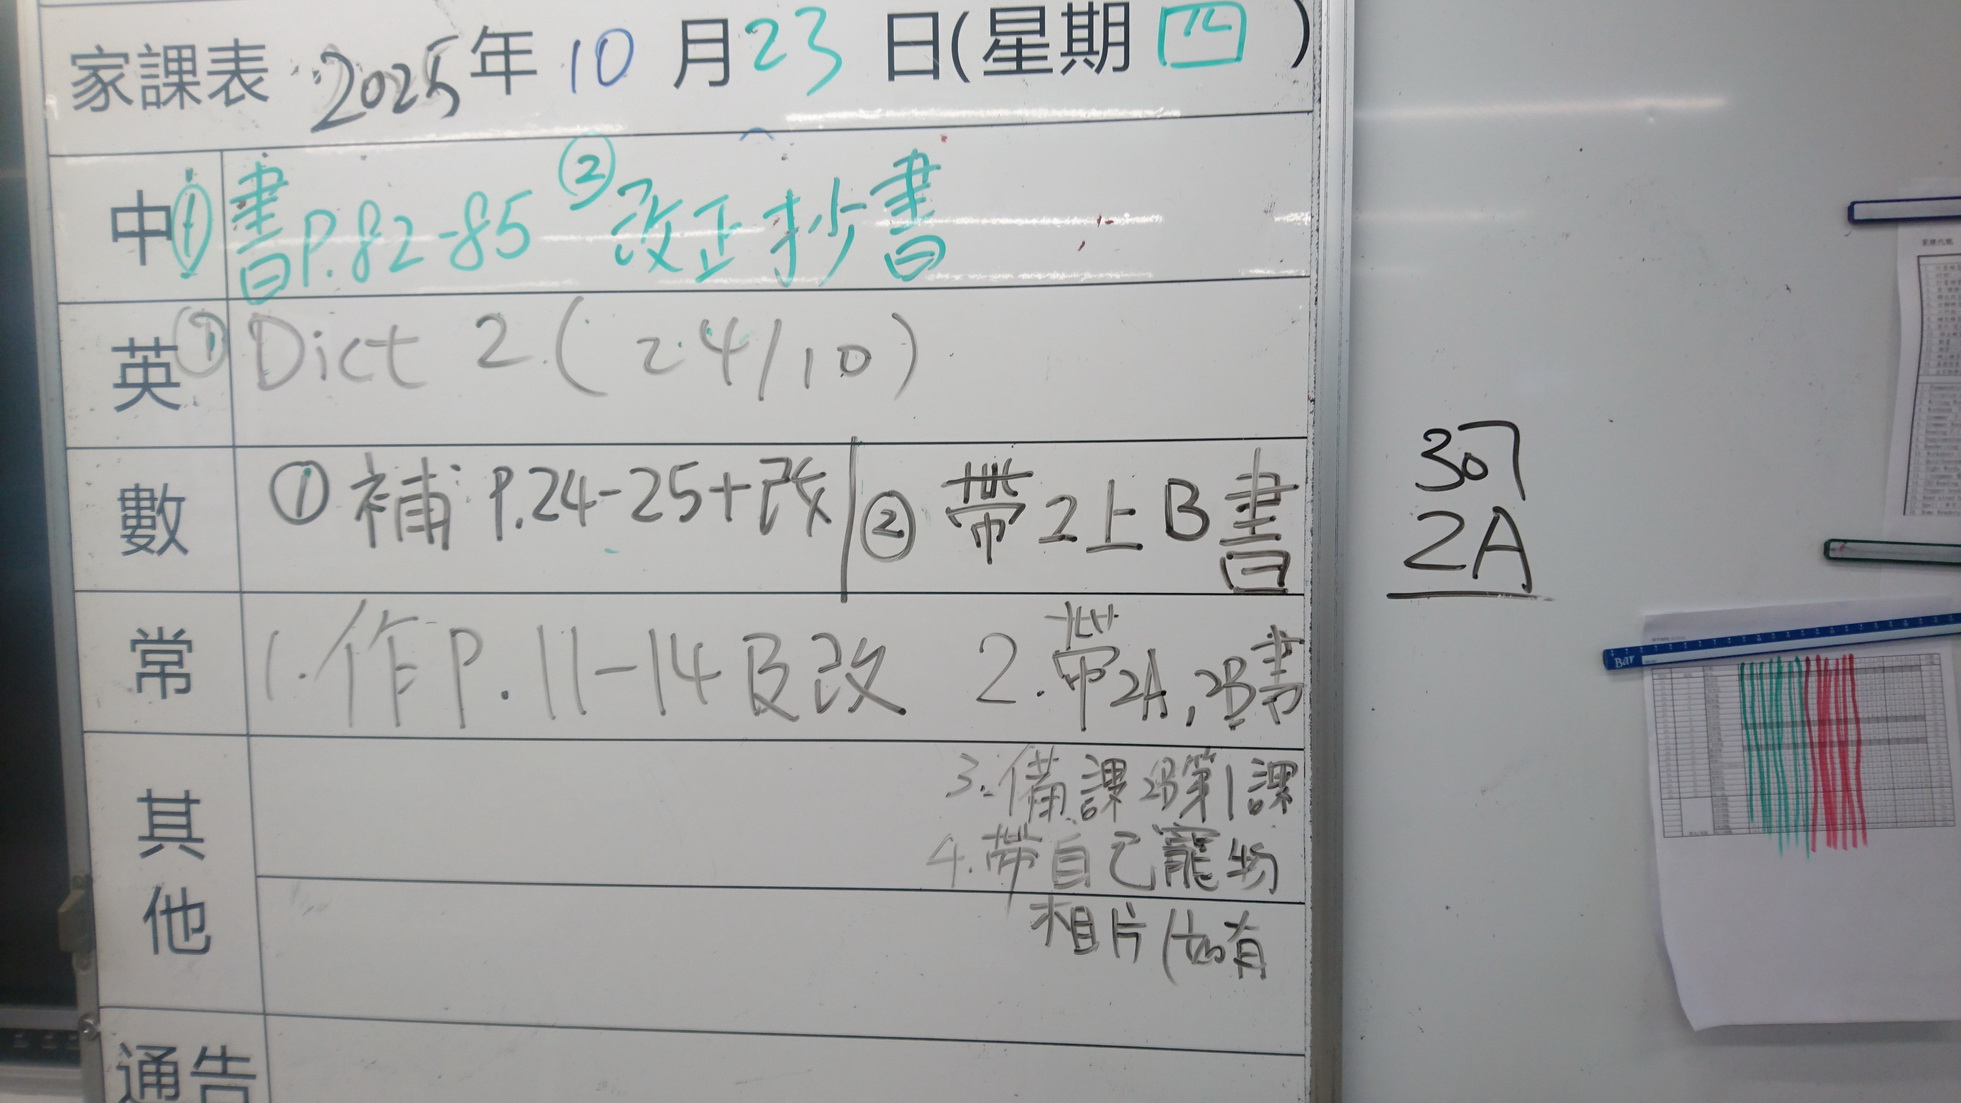 家課表 2025年 10 月 23 日(星期 四 )
中 ① 書P.82-85 ② 改正抄書
英 ① Dict 2 ( 24/10 )
數 ① 補 P.24-25+改 ② 帶2上B書
常 1. 作P. 11-14及改 2. 帶2A, 2B書
其他
3. 備課2B第1課
4. 帶自己寵物
相片(如有
通告
307
2A
Bar